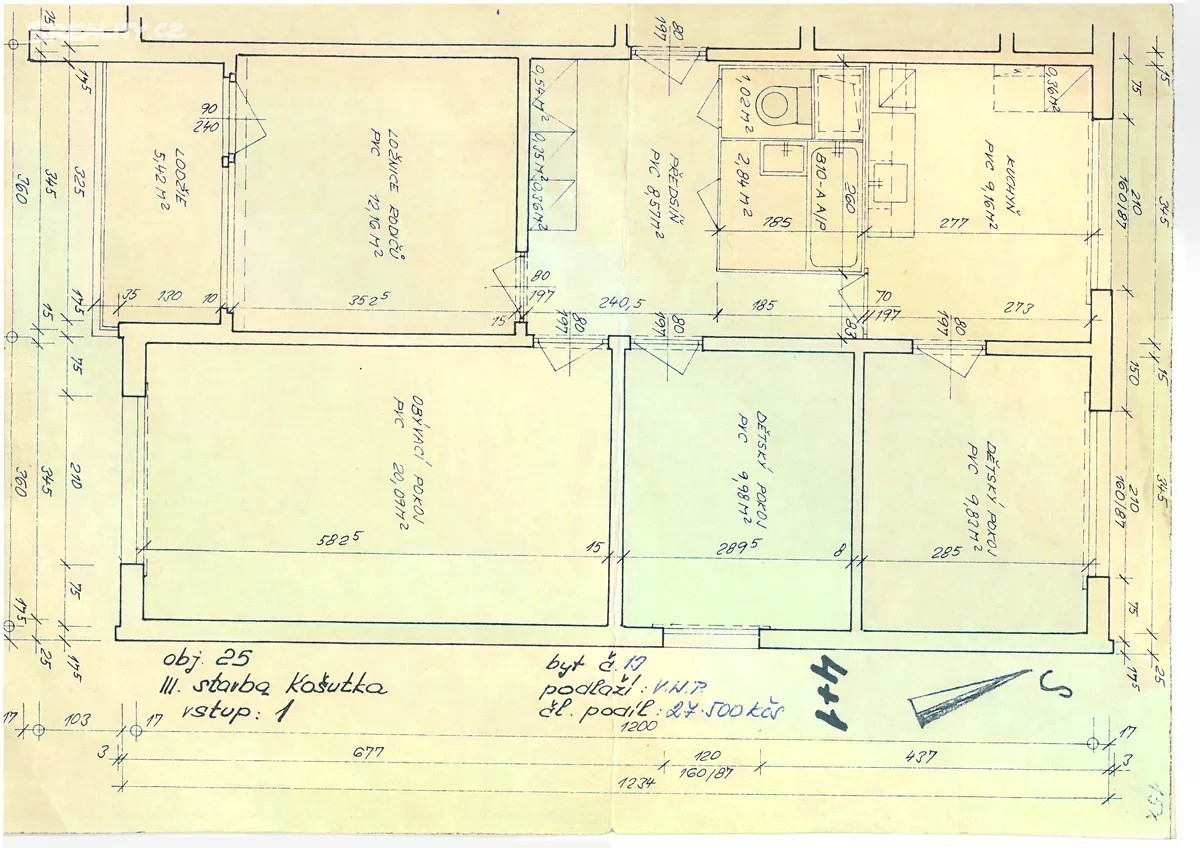 SREALITY.CZ
LODŽIE
5,42 M²
LOŽNICE RODIČŮ
PVC 12,16 M²
0,54 M²
0,35 M²
0,36 M²
PŘEDSÍŇ
PVC 8,57 M²
1,02 M²
2,84 M²
B10-A A/P
KUCHYŇ
PVC 9,16 M²
0,36 M²
OBÝVACÍ POKOJ
PVC 20,09 M²
DĚTSKÝ POKOJ
PVC 9,98 M²
DĚTSKÝ POKOJ
PVC 9,83 M²
90
240
80
197
80
197
80
197
80
197
70
197
80
197
35 130 10 352⁵ 15 240,5 185 273
185 277
260
93
582⁵ 15 289⁵ 8 285
25 175 325 175 15 75 210 75 175
15 345 15 345 25
360 360 175
75 210 160/87 150 210 160/87 75 175
15 345 15 345 25
obj. 25
III. stavba Košutka
vstup: 1
byt č. 17
podlaží: V.N.P.
čl. podíl: 27.500 Kčs
4+1
S
17 103 17 1200 17
3 677 120 437 3
160/87
1234